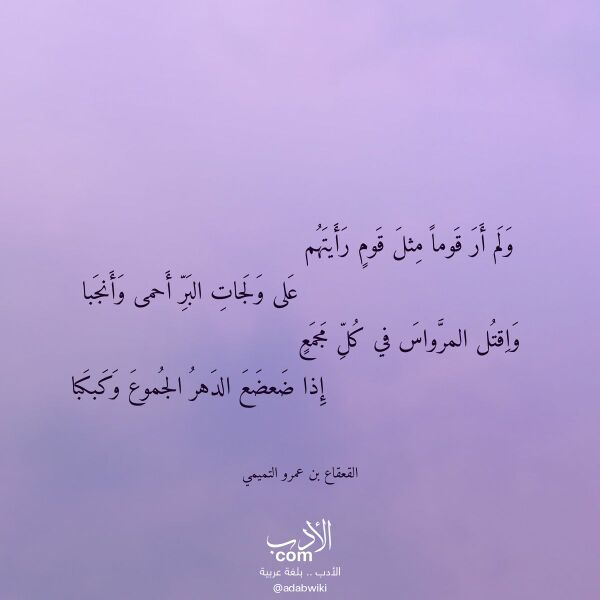 وَلَم أَرَ قَوماً مِثلَ قَومٍ رَأَيتَهُم
عَلى وَلَجاتِ البَرِّ أَحمى وَأَنجَبا
وَاِقتُل المرَّواسَ في كُلِّ مَجمَعٍ
إِذا ضَعضَعَ الدَهرُ الجُموعَ وَكَبكَبا
القعقاع بن عمرو التميمي
الأدب
.com
الأدب .. بلغة عربية
@adabwiki